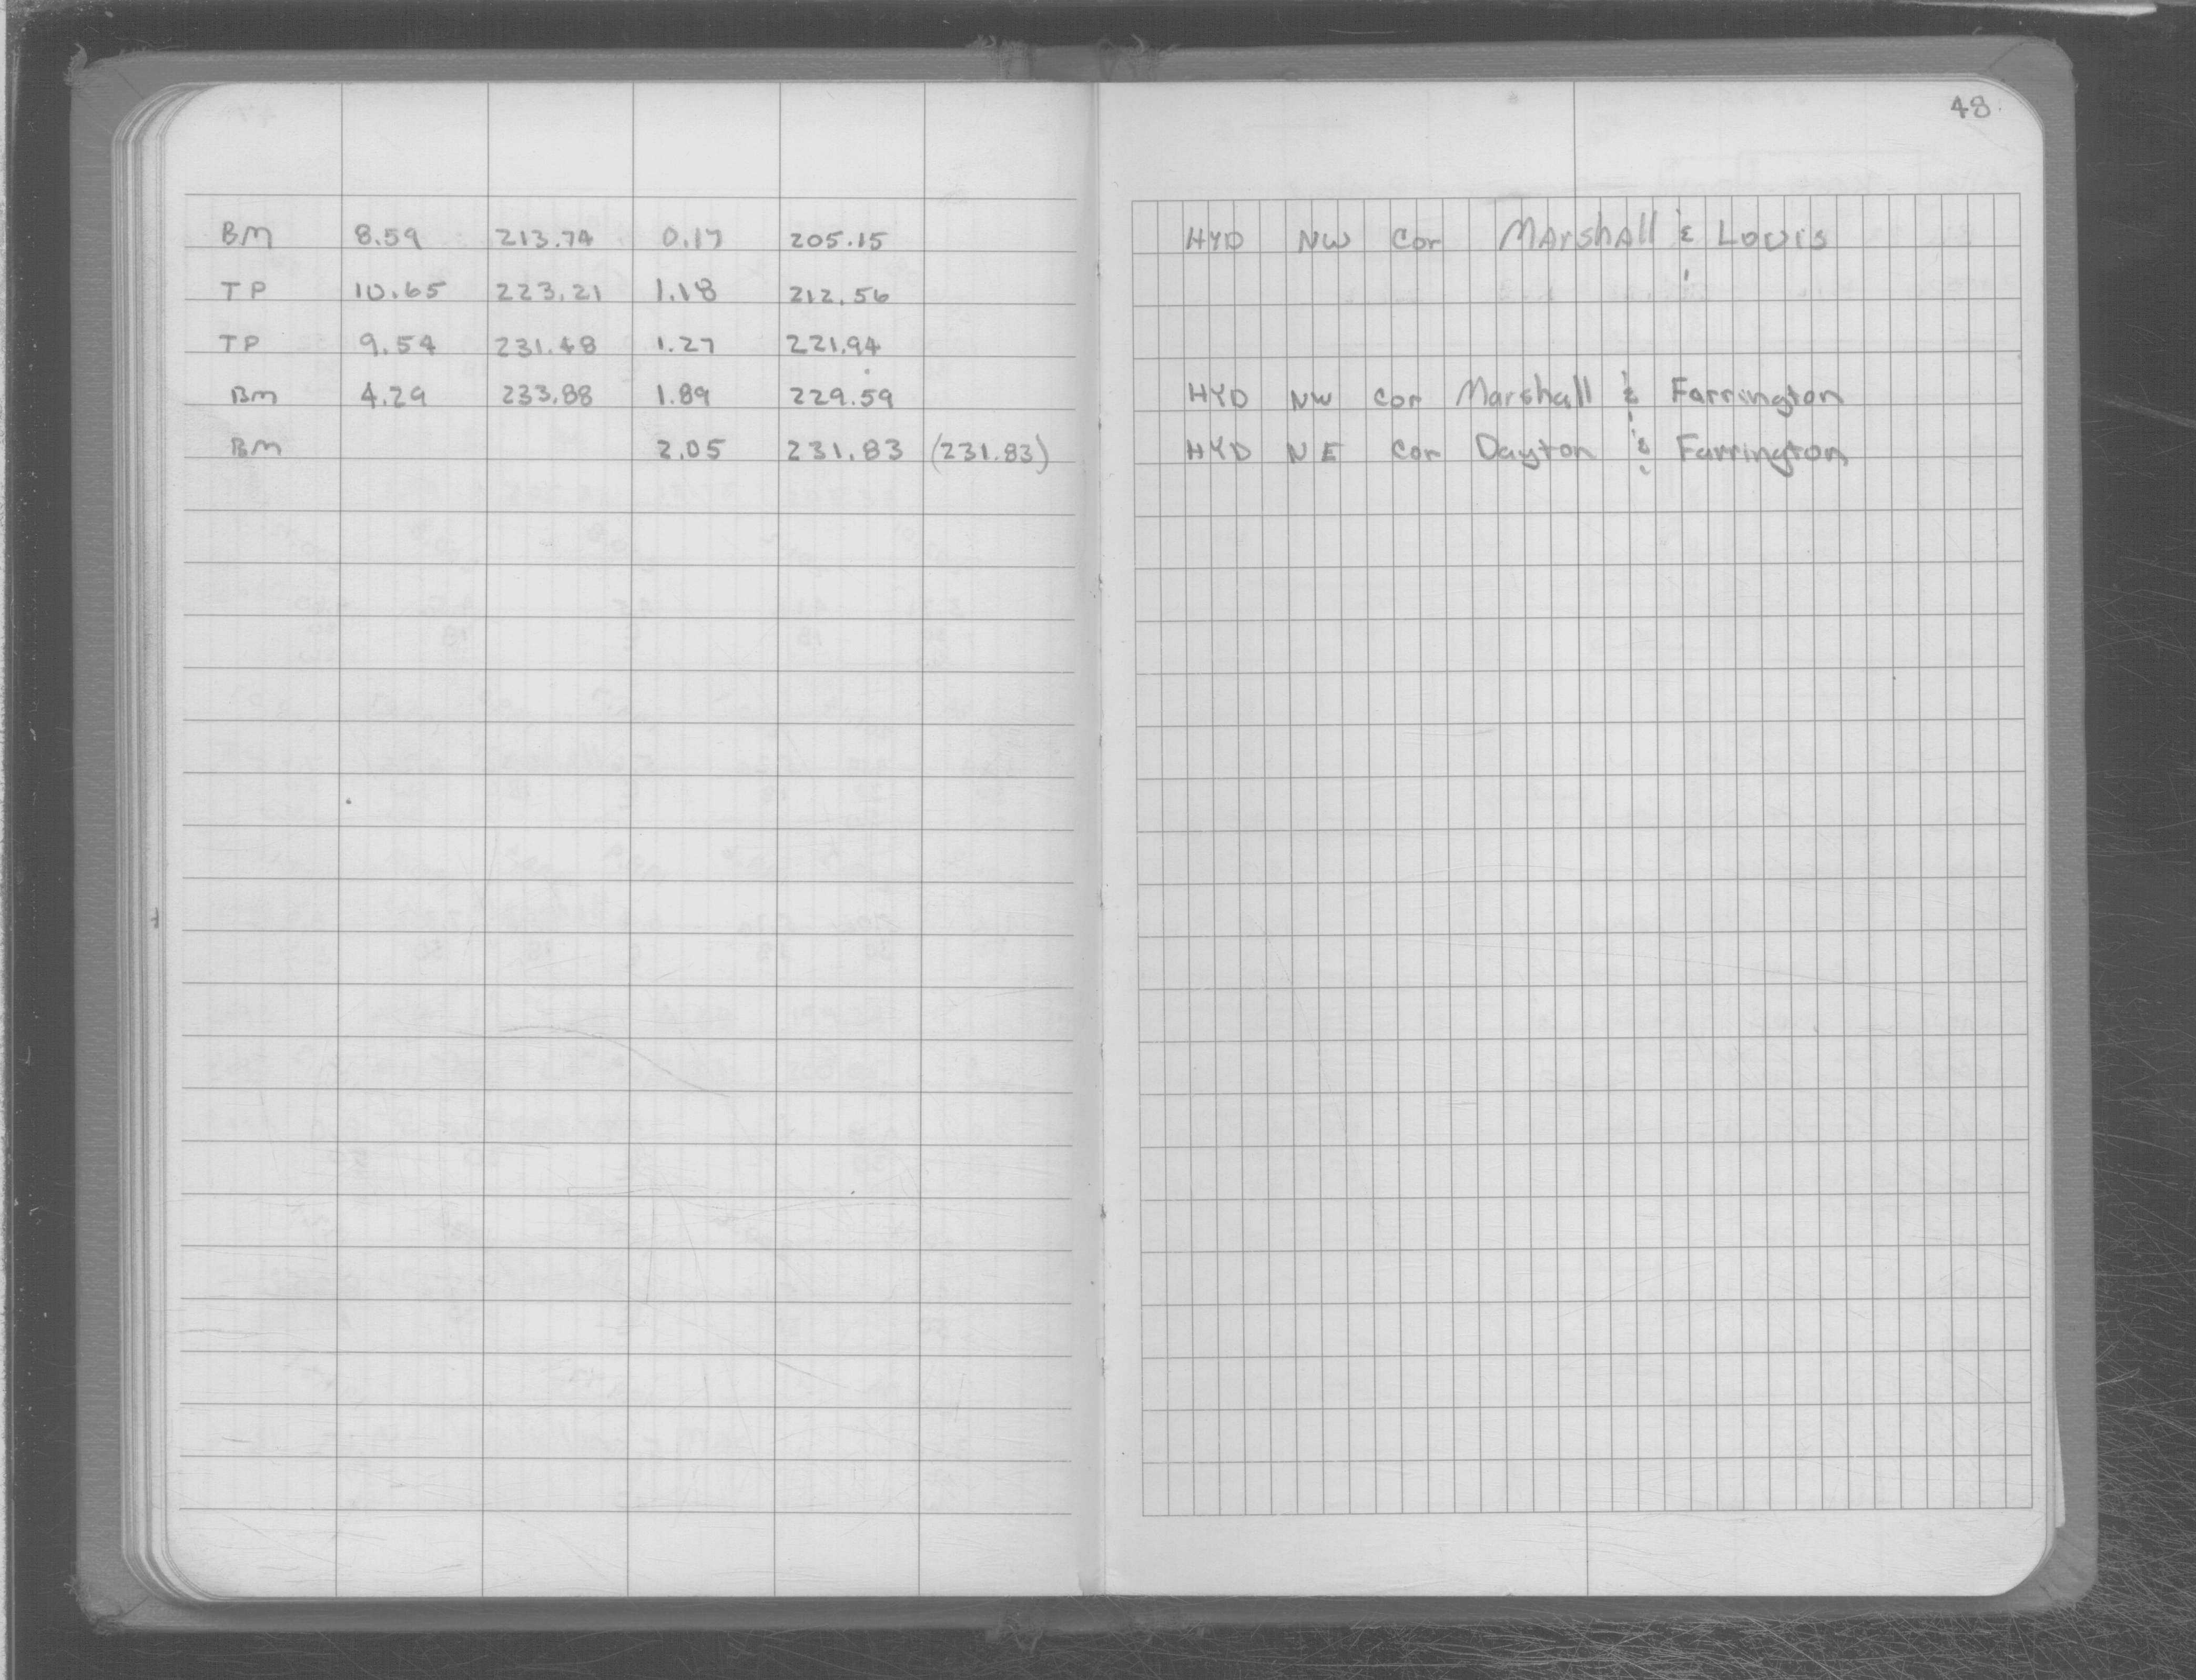 48
BM 8.59 213.74 0.17 205.15 HYD NW Cor Marshall & Louis
TP 10.65 223.21 1.18 212.56
TP 9.54 231.48 1.27 221.94
BM 4.29 233.88 1.89 229.59 HYD NW Cor Marshall & Farrington
BM 2.05 231.83 (231.83) HYD NE Cor Dayton & Farrington